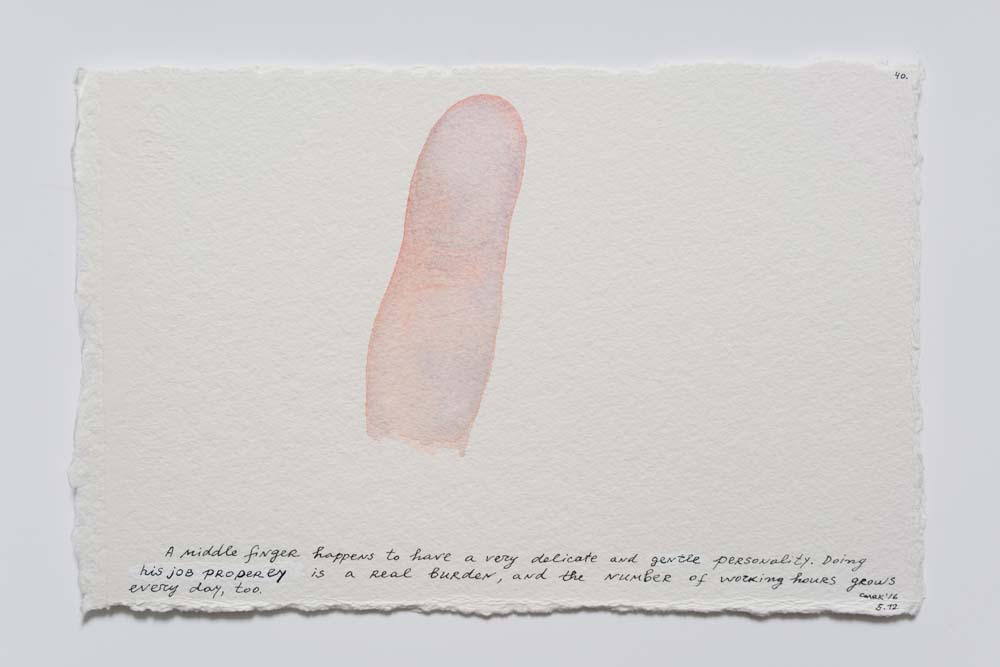 40.
A middle finger happens to have a very delicate and gentle personality. Doing
his job properly is a real burden, and the number of working hours grows
every day, too.
5.12